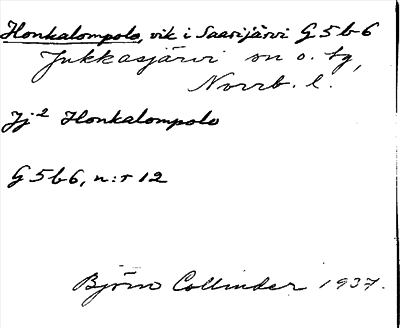 Honkalompolo, vik i Saarijärvi G5b6
Jukkasjärvi sn o. tg,
Norrb. l.
Jj² Honkalompolo
G5b6, n:r 12
Björn Collinder 1937.